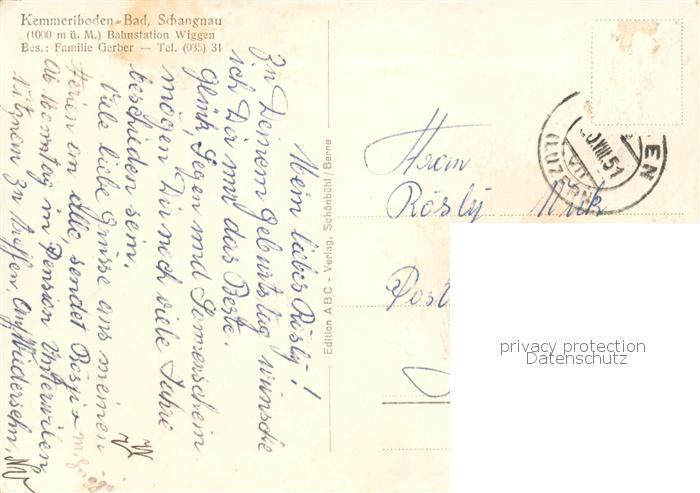 Kemmeriboden-Bad, Schangnau
(1000 m ü. M.) Bahnstation Wiggen
Bes.: Familie Gerber — Tel. (035) 31
Mein liebes Rösly!
Zu Deinem Geburtstag wünsche
ich Dir nur das Beste.
Glück, Segen und Sonnenschein
mögen Dir noch viele Jahre
beschieden sein.
Viele liebe Grüsse aus meinen
Ferien an alle, sendet Rösji
Ab Montag in Pension Unterwilen
Vitznau zu treffen. Auf Wiedersehn.
Edition ABC - Verlag, Schönbühl/Berne
Frau
Rösly
Post
VIII.51
(LUZERN)
privacy protection
Datenschutz